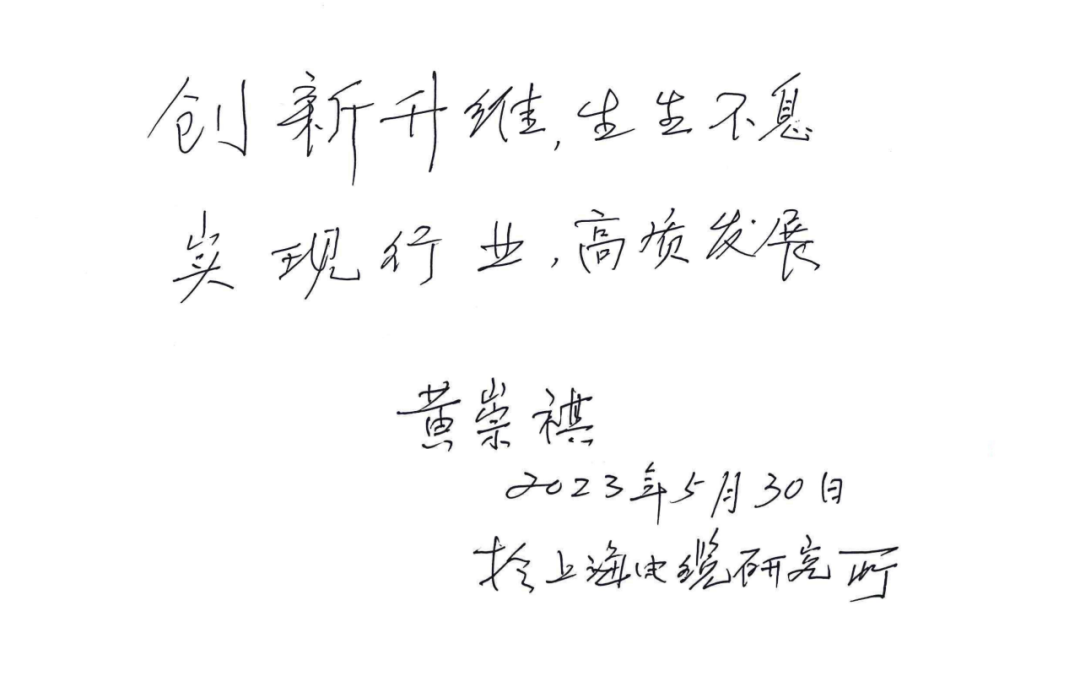 创新升维,生生不息
实现行业,高质发展
黄崇祺
2023年5月30日
於上海电缆研究所